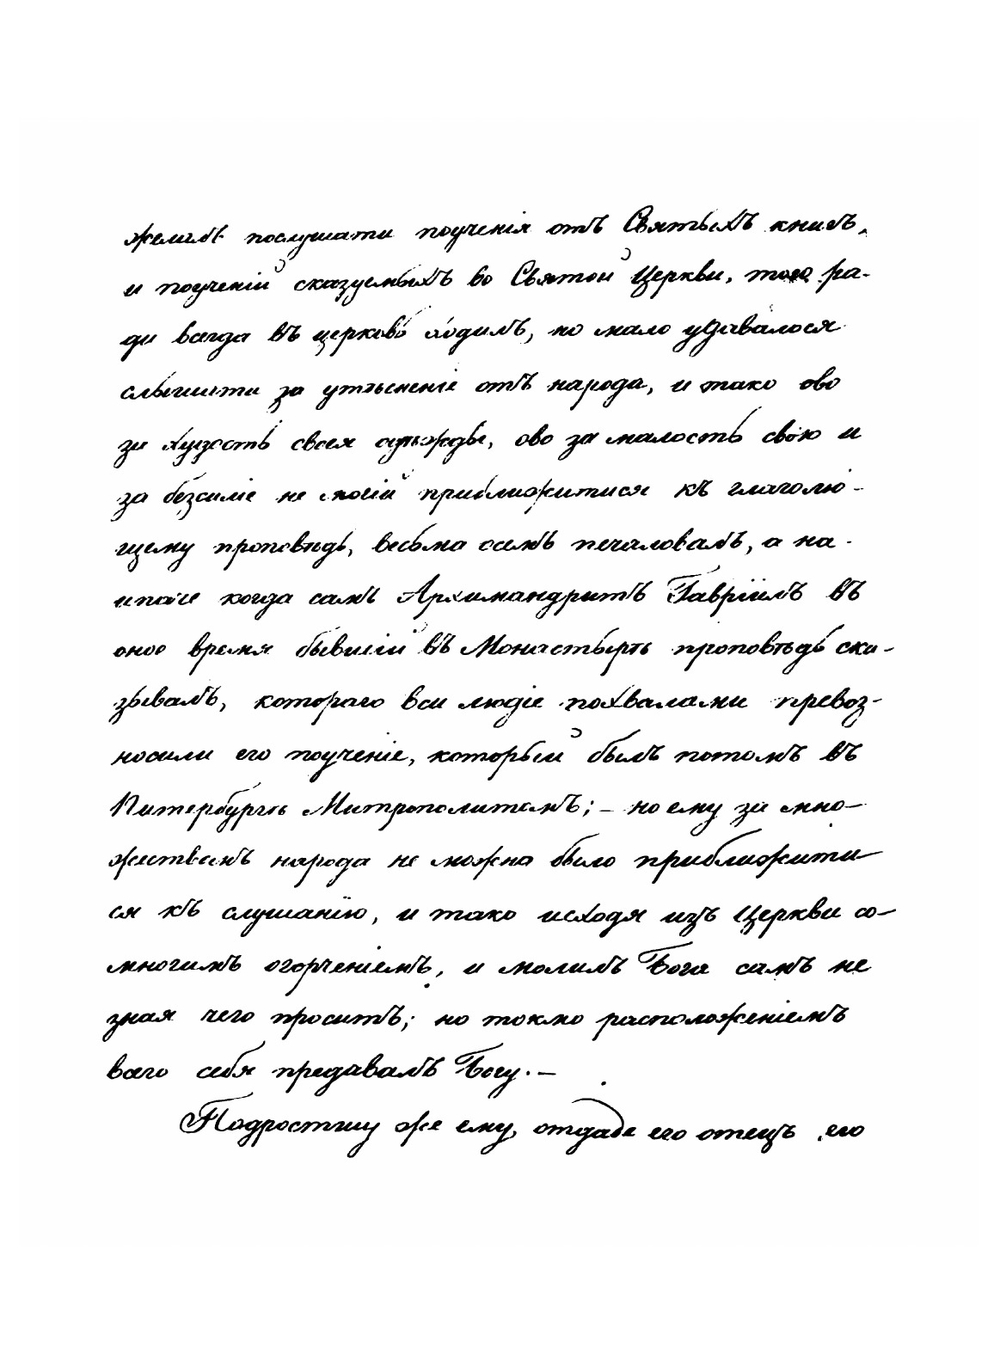 желалъ послушати поученія отъ Святыхъ книгъ,
и поученій сказуемыхъ во Святой Церкви, того ра-
ди всегда въ церковь ходилъ, но мало удавалося
слышати за утѣсненіе отъ народа, и тако ово
за худость своея одежды, ово за малость свою и
за безсиліе не могій приближитися къ глаголю-
щему проповѣдь, весьма о семъ печаловалъ, а на-
ипаче когда самъ Архимандритъ Гавріилъ въ
оное время бывшій въ Монастырѣ проповѣдь ска-
зывалъ, котораго вси людіе похвалами превоз-
носили его поученіе, который былъ потомъ въ
Питербургѣ Митрополитомъ; — но ему за мно-
жествомъ народа не можно было приближити
ся къ слушанію, и тако исходя изъ Церкви со-
многимъ огорченіемъ, и молилъ Бога самъ не
зная чего проситъ; но токмо расположеніемъ
всего себя предавалъ Богу. —
Подростшу же ему, отдаде его отецъ его